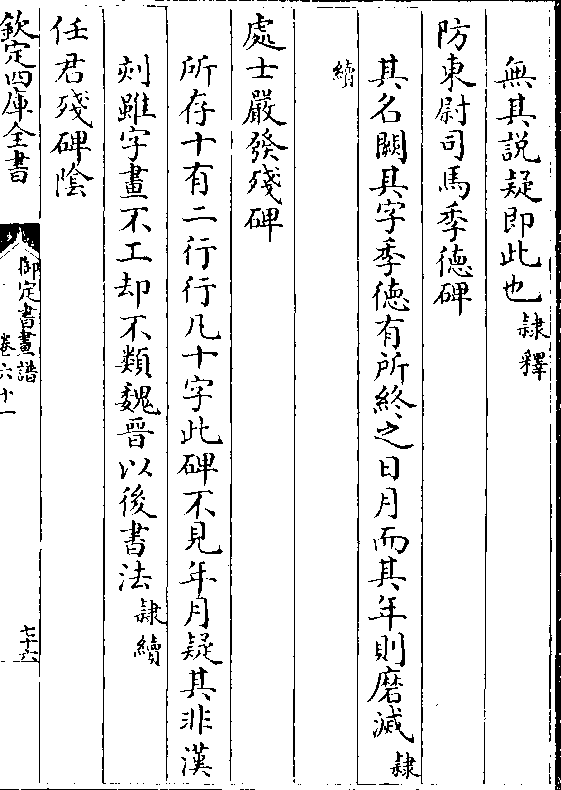 無其説疑即此也隷釋
防東尉司馬季徳碑
其名闕其字季徳有所終之日月而其年則磨滅隷
續
處士嚴發殘碑
所存十有二行行凡十字此碑不見年月疑其非漢
刻雖字畫不工却不類魏晉以後書法隷續
任君殘碑陰
欽定四庫全書
御定書畫譜
卷六十一
七十六